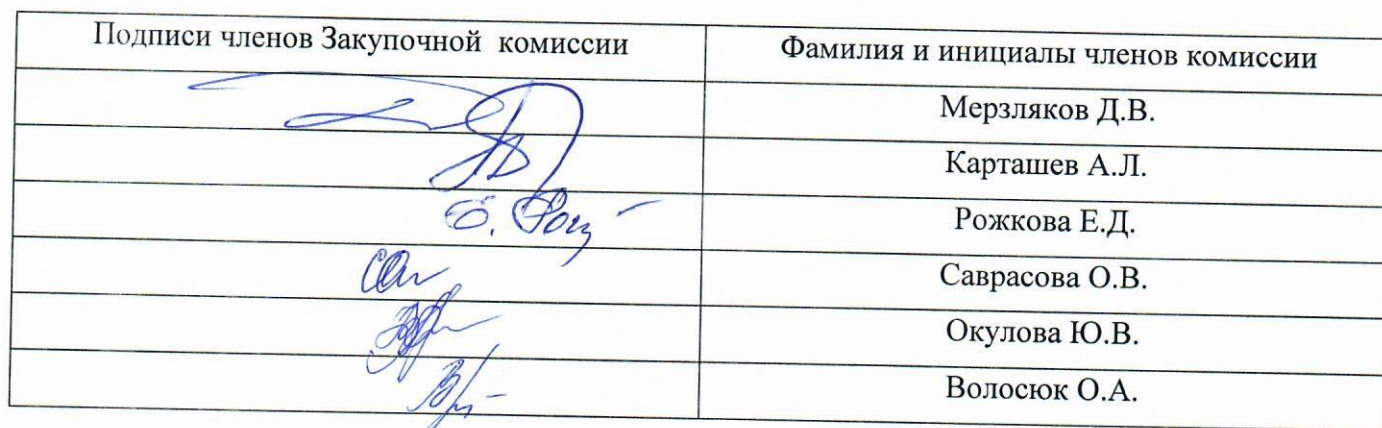 Подписи членов Закупочной комиссии
Фамилия и инициалы членов комиссии
Мерзляков Д.В.
Карташев А.Л.
Рожкова Е.Д.
Саврасова О.В.
Окулова Ю.В.
Волосюк О.А.